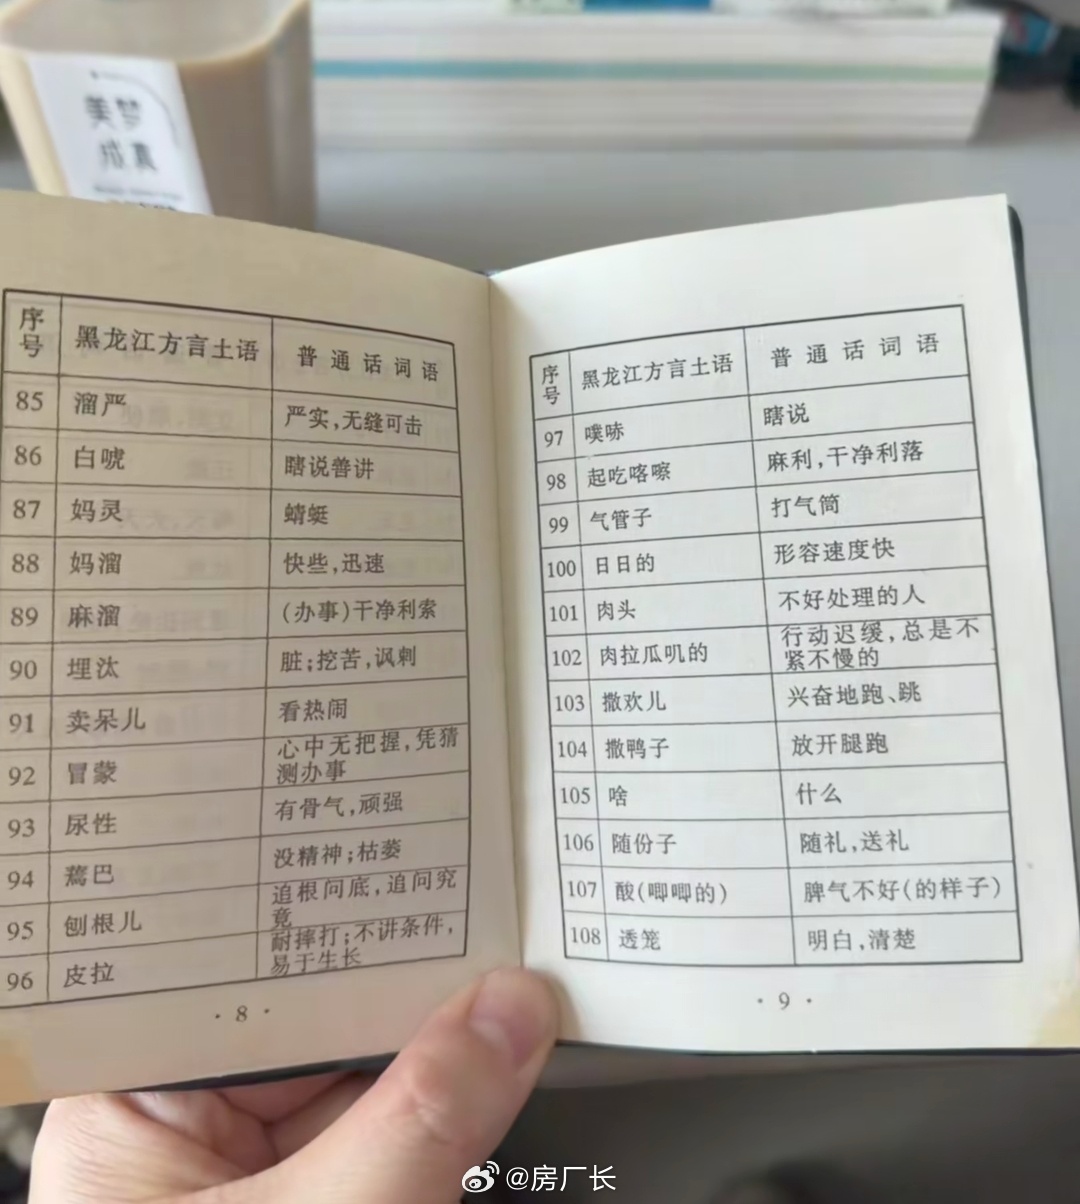 美梦
成真
序号 黑龙江方言土语 普通话词语
85 溜严 严实,无缝可击
86 白唬 瞎说善讲
87 妈灵 蜻蜓
88 妈溜 快些,迅速
89 麻溜 (办事)干净利索
90 埋汰 脏;挖苦,讽刺
91 卖呆儿 看热闹
92 冒蒙 心中无把握,凭猜
测办事
93 尿性 有骨气,顽强
94 蔫巴 没精神;枯萎
95 刨根儿 追根问底,追问究
竟
96 皮拉 耐摔打;不讲条件,
易于生长
·8·
序号 黑龙江方言土语 普通话词语
97 噗哧 瞎说
98 起吃喀嚓 麻利,干净利落
99 气管子 打气筒
100 日日的 形容速度快
101 肉头 不好处理的人
102 肉拉瓜叽的 行动迟缓,总是不
紧不慢的
103 撒欢儿 兴奋地跑、跳
104 撒鸭子 放开腿跑
105 啥 什么
106 随份子 随礼,送礼
107 酸(唧唧的) 脾气不好(的样子)
108 透笼 明白,清楚
·9·
@房厂长